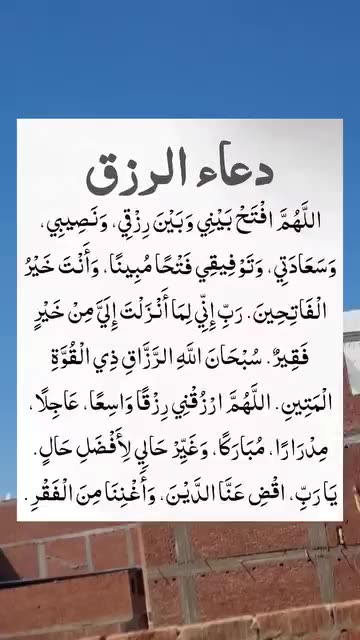 دعاء الرزق
اللَّهُمَّ افْتَحْ بَيْنِي وَبَيْنَ رِزْقِي، وَنَصِيبِي،
وَسَعَادَتِي، وَتَوْفِيقِي فَتْحًا مُبِينًا، وَأَنْتَ خَيْرُ
الْفَاتِحِينَ. رَبِّ إِنِّي لِمَا أَنْزَلْتَ إِلَيَّ مِنْ خَيْرٍ
فَقِيرٌ. سُبْحَانَ اللَّهِ الرَّزَّاقِ ذِي الْقُوَّةِ
الْمَتِينِ. اللَّهُمَّ ارْزُقْنِي رِزْقًا وَاسِعًا، عَاجِلًا،
مِدْرَارًا، مُبَارَكًا، وَغَيِّرْ حَالِي لِأَفْضَلِ حَالٍ.
يَا رَبِّ، اقْضِ عَنَّا الدَّيْنَ، وَأَغْنِنَا مِنَ الْفَقْرِ.